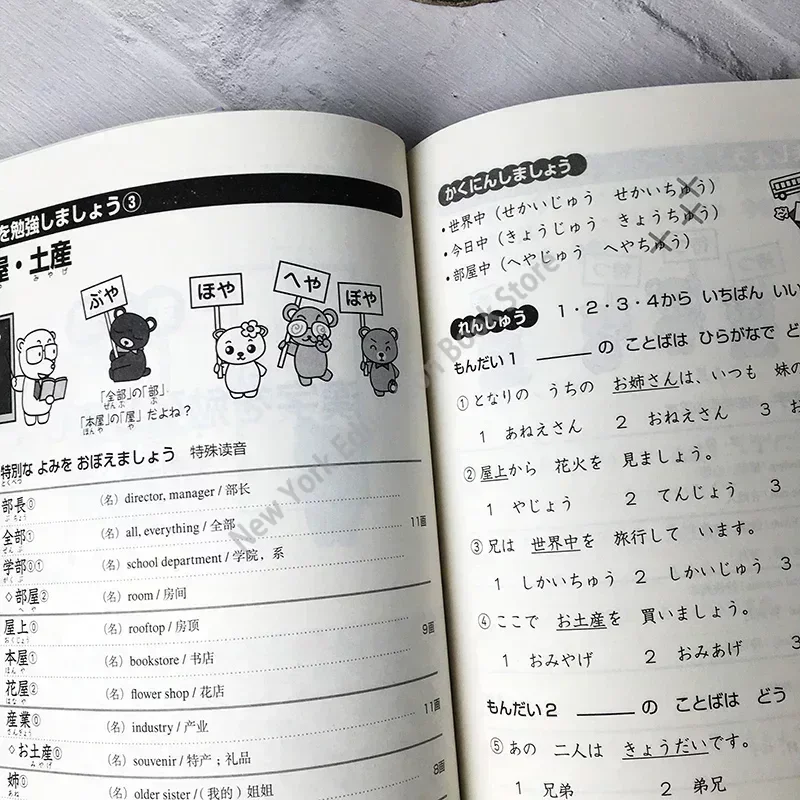 を勉強しましょう③
屋・土産
みやげ
ぶや
ほや
へや
ぼや
「全部」の「部」
ぜんぶ ぶ
「本屋」の「屋」だよね？
ほんや や
特別な よみを おぼえましょう 特殊读音
とくべつ
部長⓪ (名) director, manager / 部长
ぶちょう
全部① (名) all, everything / 全部 11画
ぜんぶ
学部⓪① (名) school department / 学院，系
がくぶ
◇部屋② (名) room / 房间
へや
屋上⓪ (名) rooftop / 房顶 9画
おくじょう
本屋① (名) bookstore / 书店
ほんや
花屋② (名) flower shop / 花店
はなや
産業⓪ (名) industry / 产业 11画
さんぎょう
◇お土産⓪ (名) souvenir / 特产；礼品
みやげ
姉⓪ (名) older sister /（我的）姐姐 8画
あね
かくにんしましょう
・世界中（せかいじゅう せかいちゅう）
・今日中（きょうじゅう きょうちゅう）
・部屋中（へやじゅう へやちゅう）
れんしゅう 1・2・3・4から いちばん いい
もんだい1 ＿＿＿の ことばは ひらがなで ど
①となりの うちの お姉さんは、いつも 妹の
1 あねえさん 2 おねえさん 3 お
②屋上から 花火を 見ましょう。
1 やじょう 2 てんじょう 3
③兄は 世界中を 旅行して います。
1 しかいちゅう 2 しかいじゅう 3
④ここで お土産を 買いましょう。
1 おみやげ 2 おみあげ 3
もんだい2 ＿＿＿の ことばは どう
⑤あの 二人は きょうだいです。
1 兄弟 2 弟兄